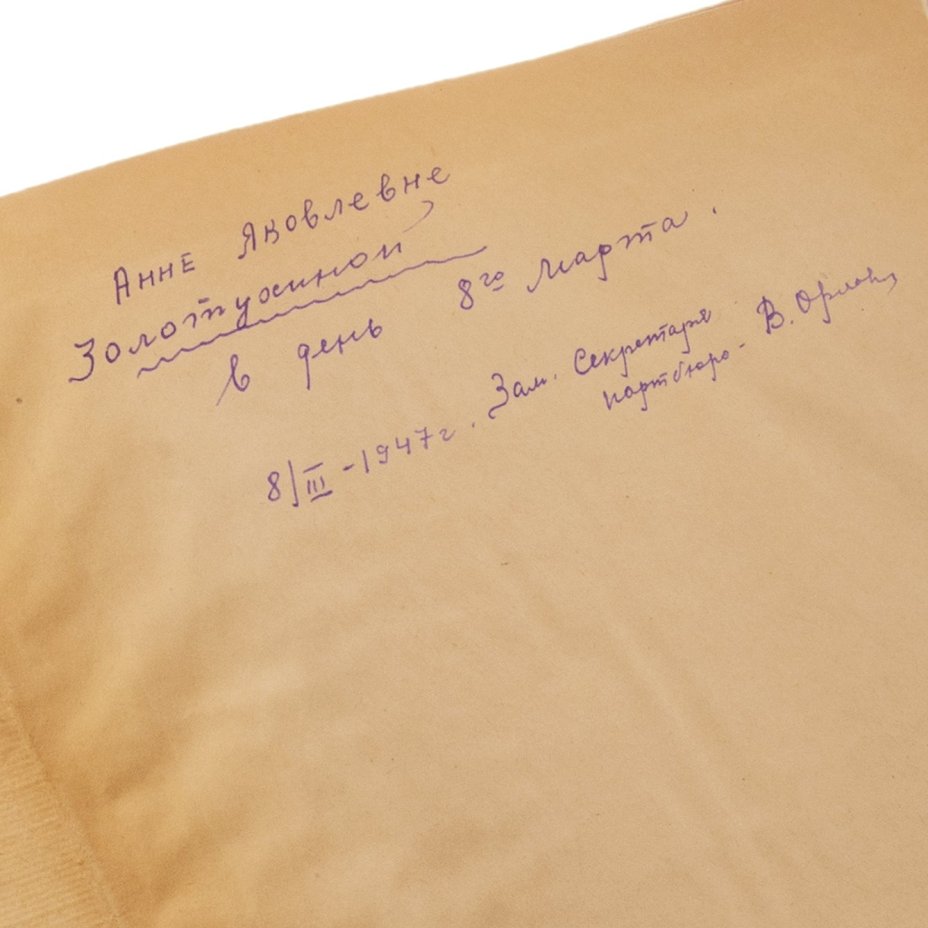 Анне Яковлевне
Золотухиной
в день 8го марта.
8/III-1947г. Зам. Секретаря
партбюро - В. Орлов